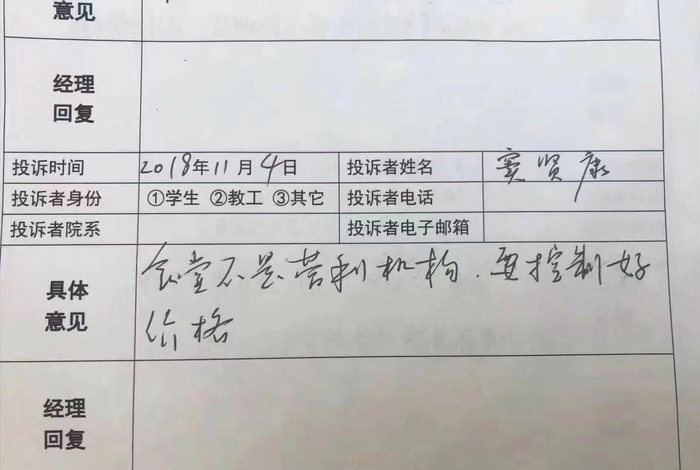 意见
经理
回复
投诉时间 2018年11月4日 投诉者姓名 窦贤康
投诉者身份 ①学生 ②教工 ③其它 投诉者电话
投诉者院系 投诉者电子邮箱
具体
意见
食堂不是营利机构，要控制好
价格
经理
回复